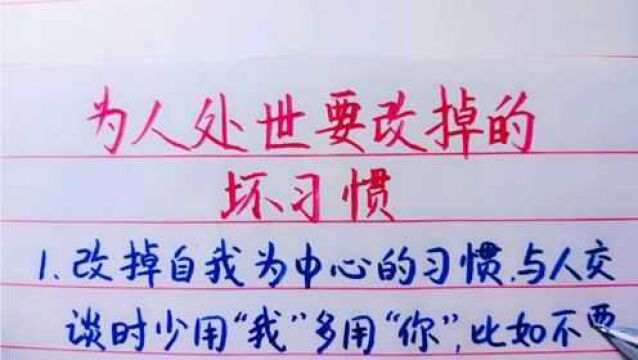 为人处世要改掉的
坏习惯
1.改掉自我为中心的习惯,与人交
谈时少用“我”多用“你”,比如不要